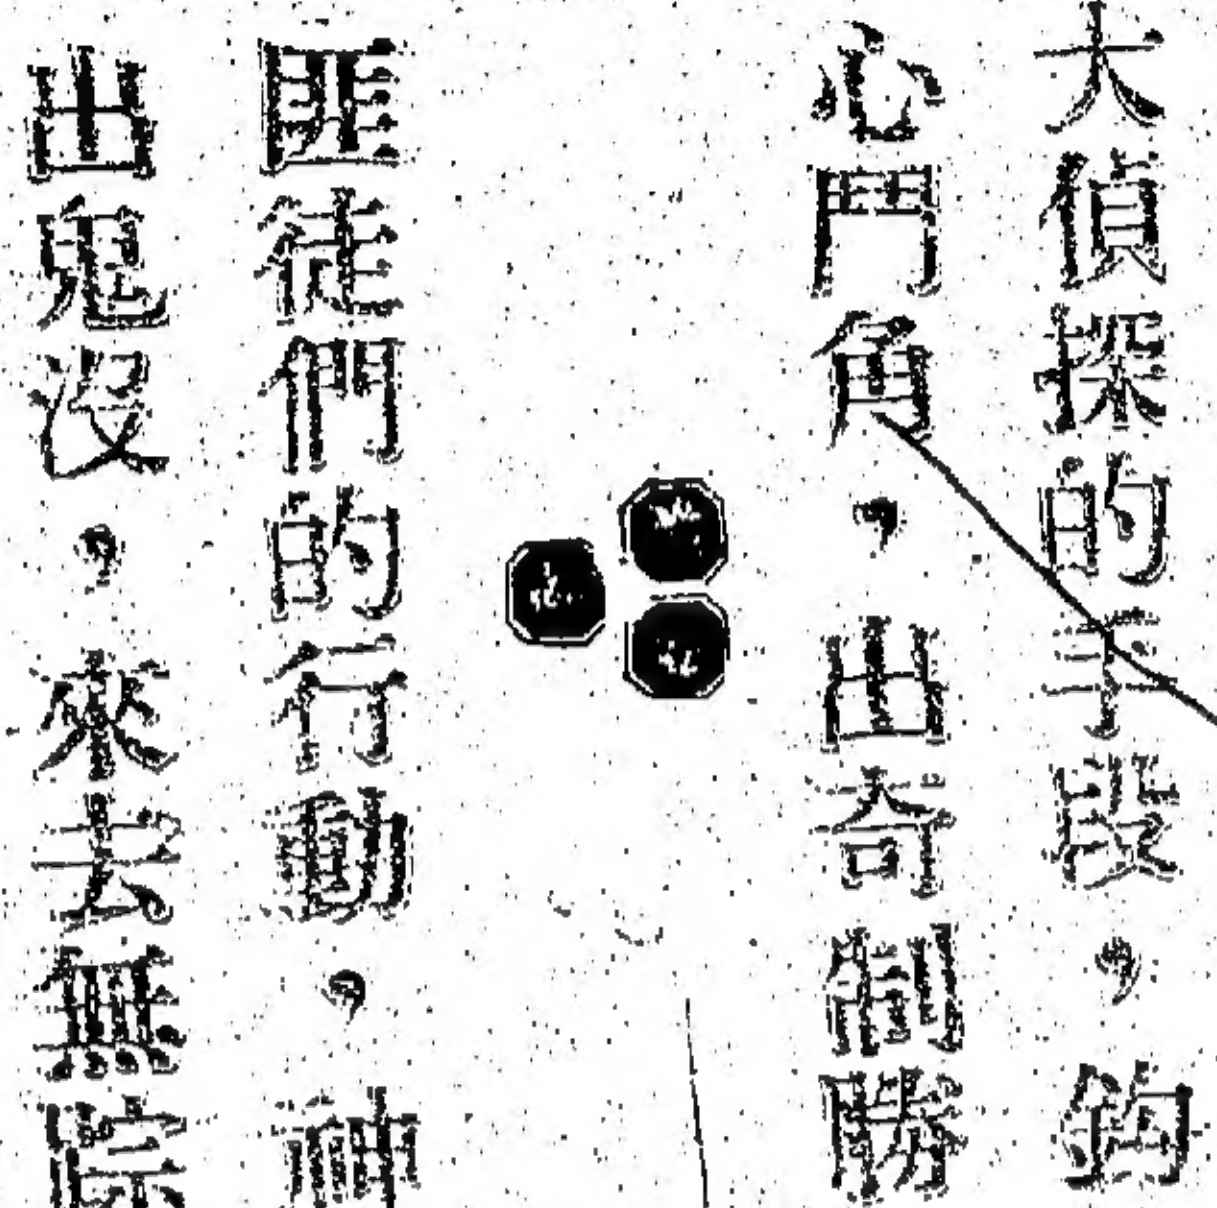 大偵探的手段，鈎
心鬥角，出奇制勝
匪徒們的行動，神
出鬼沒，來去無踪